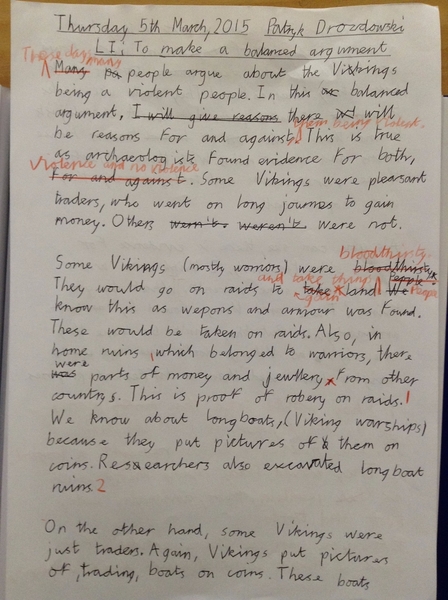 Thursday 5th March, 2015 Patryk Drozdowski
LI: To make a balanced argument
These days many
Many people argue about the Vikings
being a violent people. In this balanced
argument, I will give reasons there will
them being violent.
be reasons for and against. This is true
as archaeologists found evidence for both,
Violence and no violence
for and against. Some Vikings were pleasant
traders, who went on long journes to gain
money. Others wern't. weren't. were not.
bloodthirsty.
Some Vikings (mostly worriors) were bloodthirsty.
and take things
They would go on raids to take land We
gain
people
know this as wepons and armour was found.
These would be taken on raids. Also, in
home ruins, which belonged to warriors, there
were
was parts of money and jewllery from other
countrys. This is proof of robery on raids.1
We know about longboats, (Viking warships)
because they put pictures of them on
coins. Researchers also excavated longboat
ruins.2
On the other hand, some Vikings were
just traders. Again, Vikings put pictures
of, trading, boats on coins. These boats